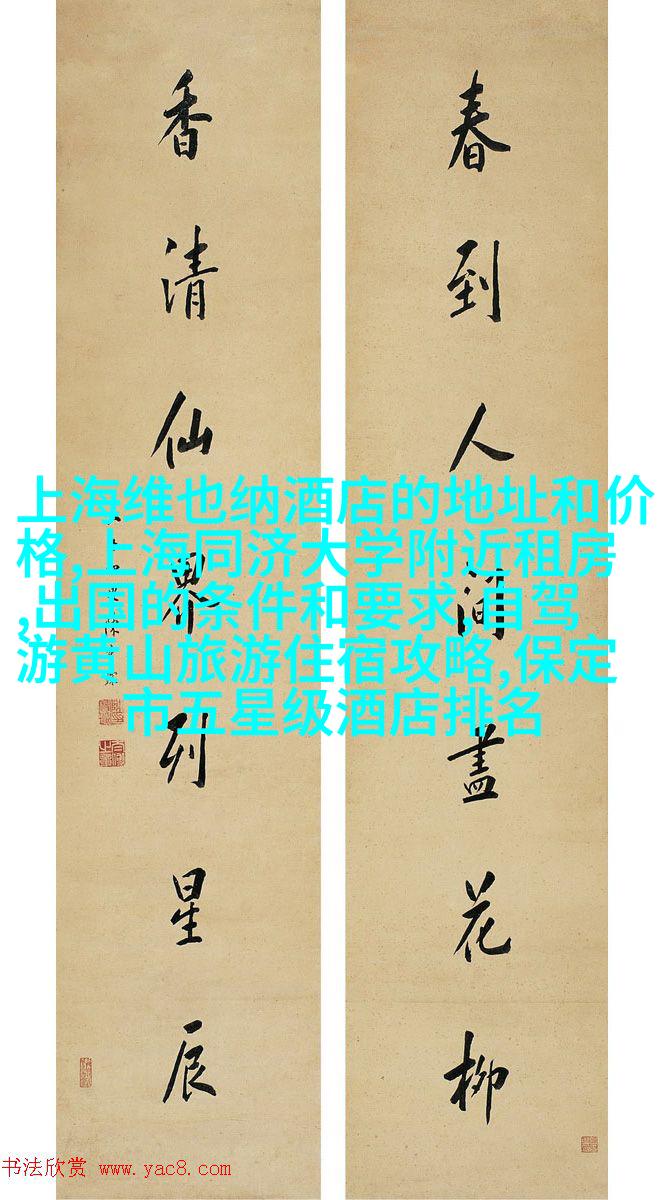 春到人間盡花柳
香清仙界列星辰
上海维也纳酒店的地址和价
格,上海同济大学附近租房
,出国的条件和要求,自驾
游黄山旅游住宿攻略,保定
市五星级酒店排名
书法欣赏 www.yac8.com